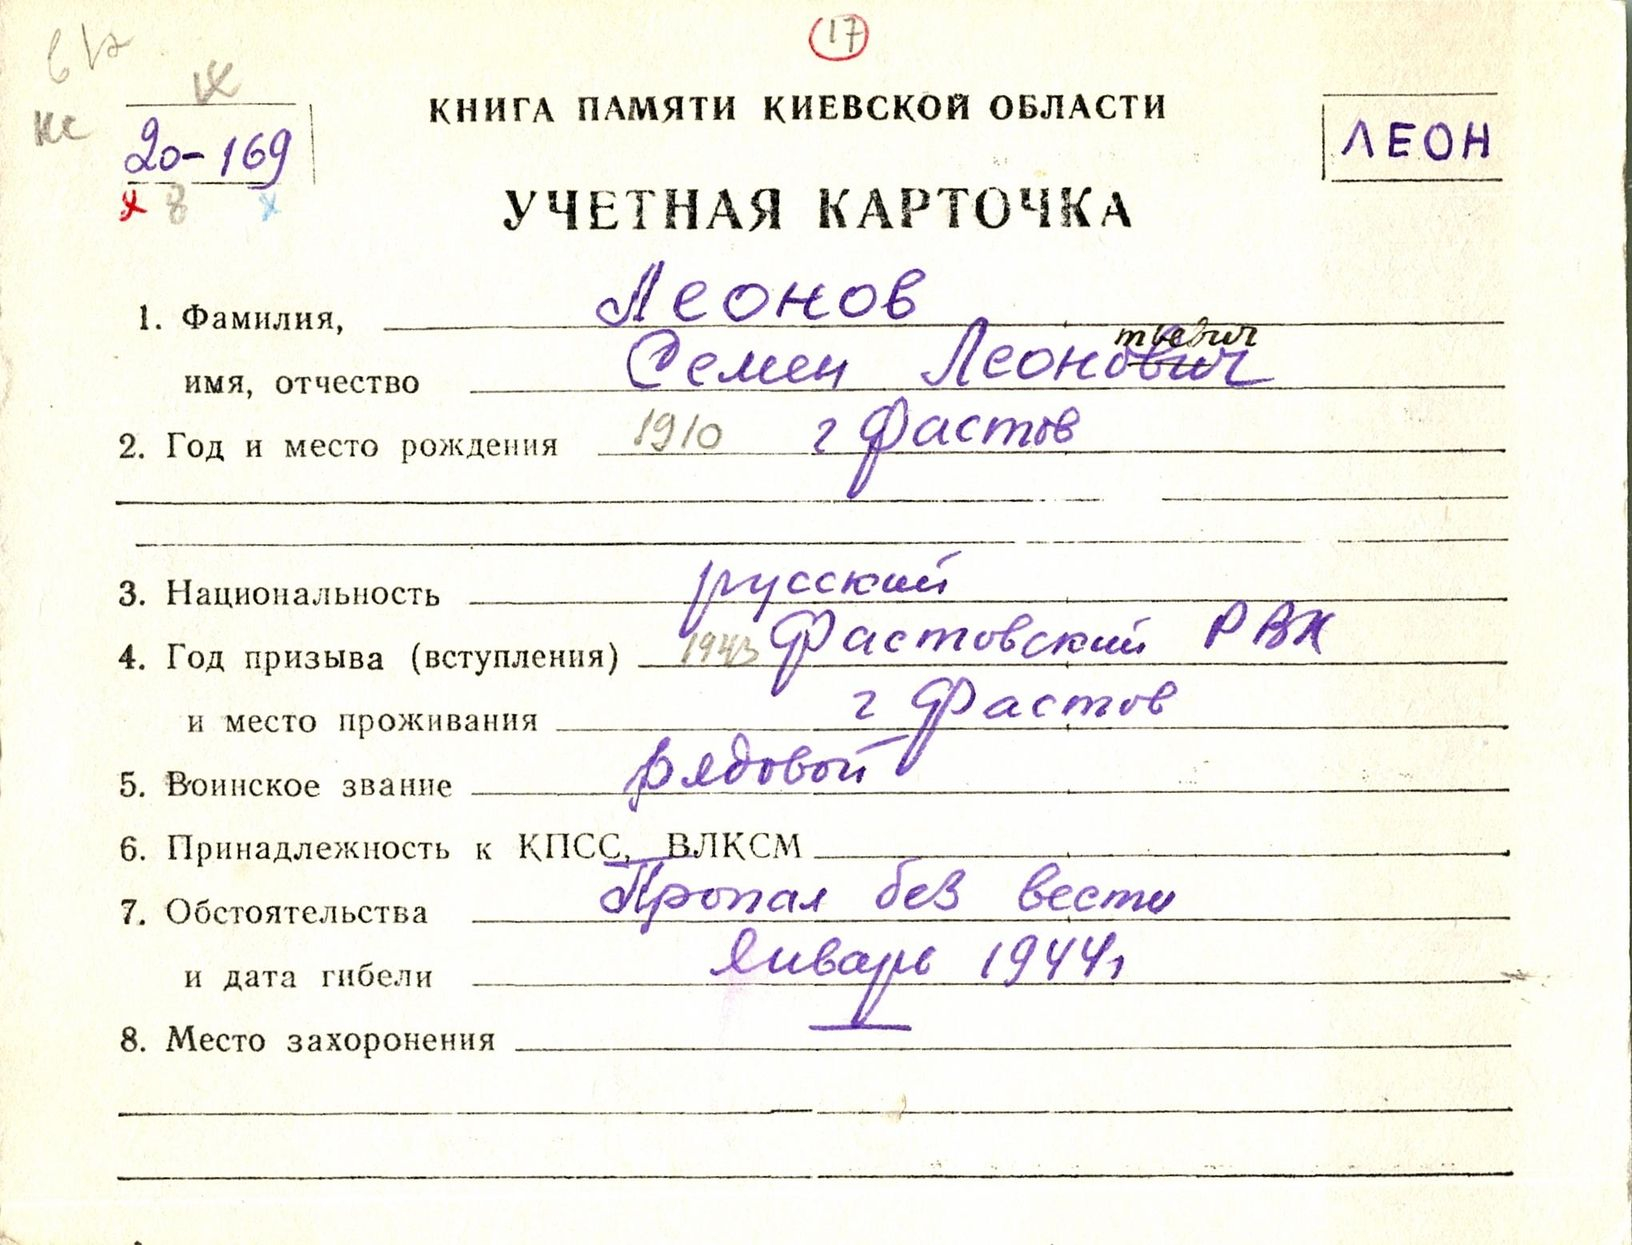 17
КНИГА ПАМЯТИ КИЕВСКОЙ ОБЛАСТИ
20-169
ЛЕОН
8
УЧЕТНАЯ КАРТОЧКА
1. Фамилия, Леонов
тьевич
имя, отчество Семен Леонович
2. Год и место рождения 1910 г Фастов
3. Национальность русский
4. Год призыва (вступления) 1943 Фастовский РВК
и место проживания г Фастов
5. Воинское звание Рядовой
6. Принадлежность к КПСС, ВЛКСМ
7. Обстоятельства Пропал без вести
и дата гибели Январь 1944г
8. Место захоронения —